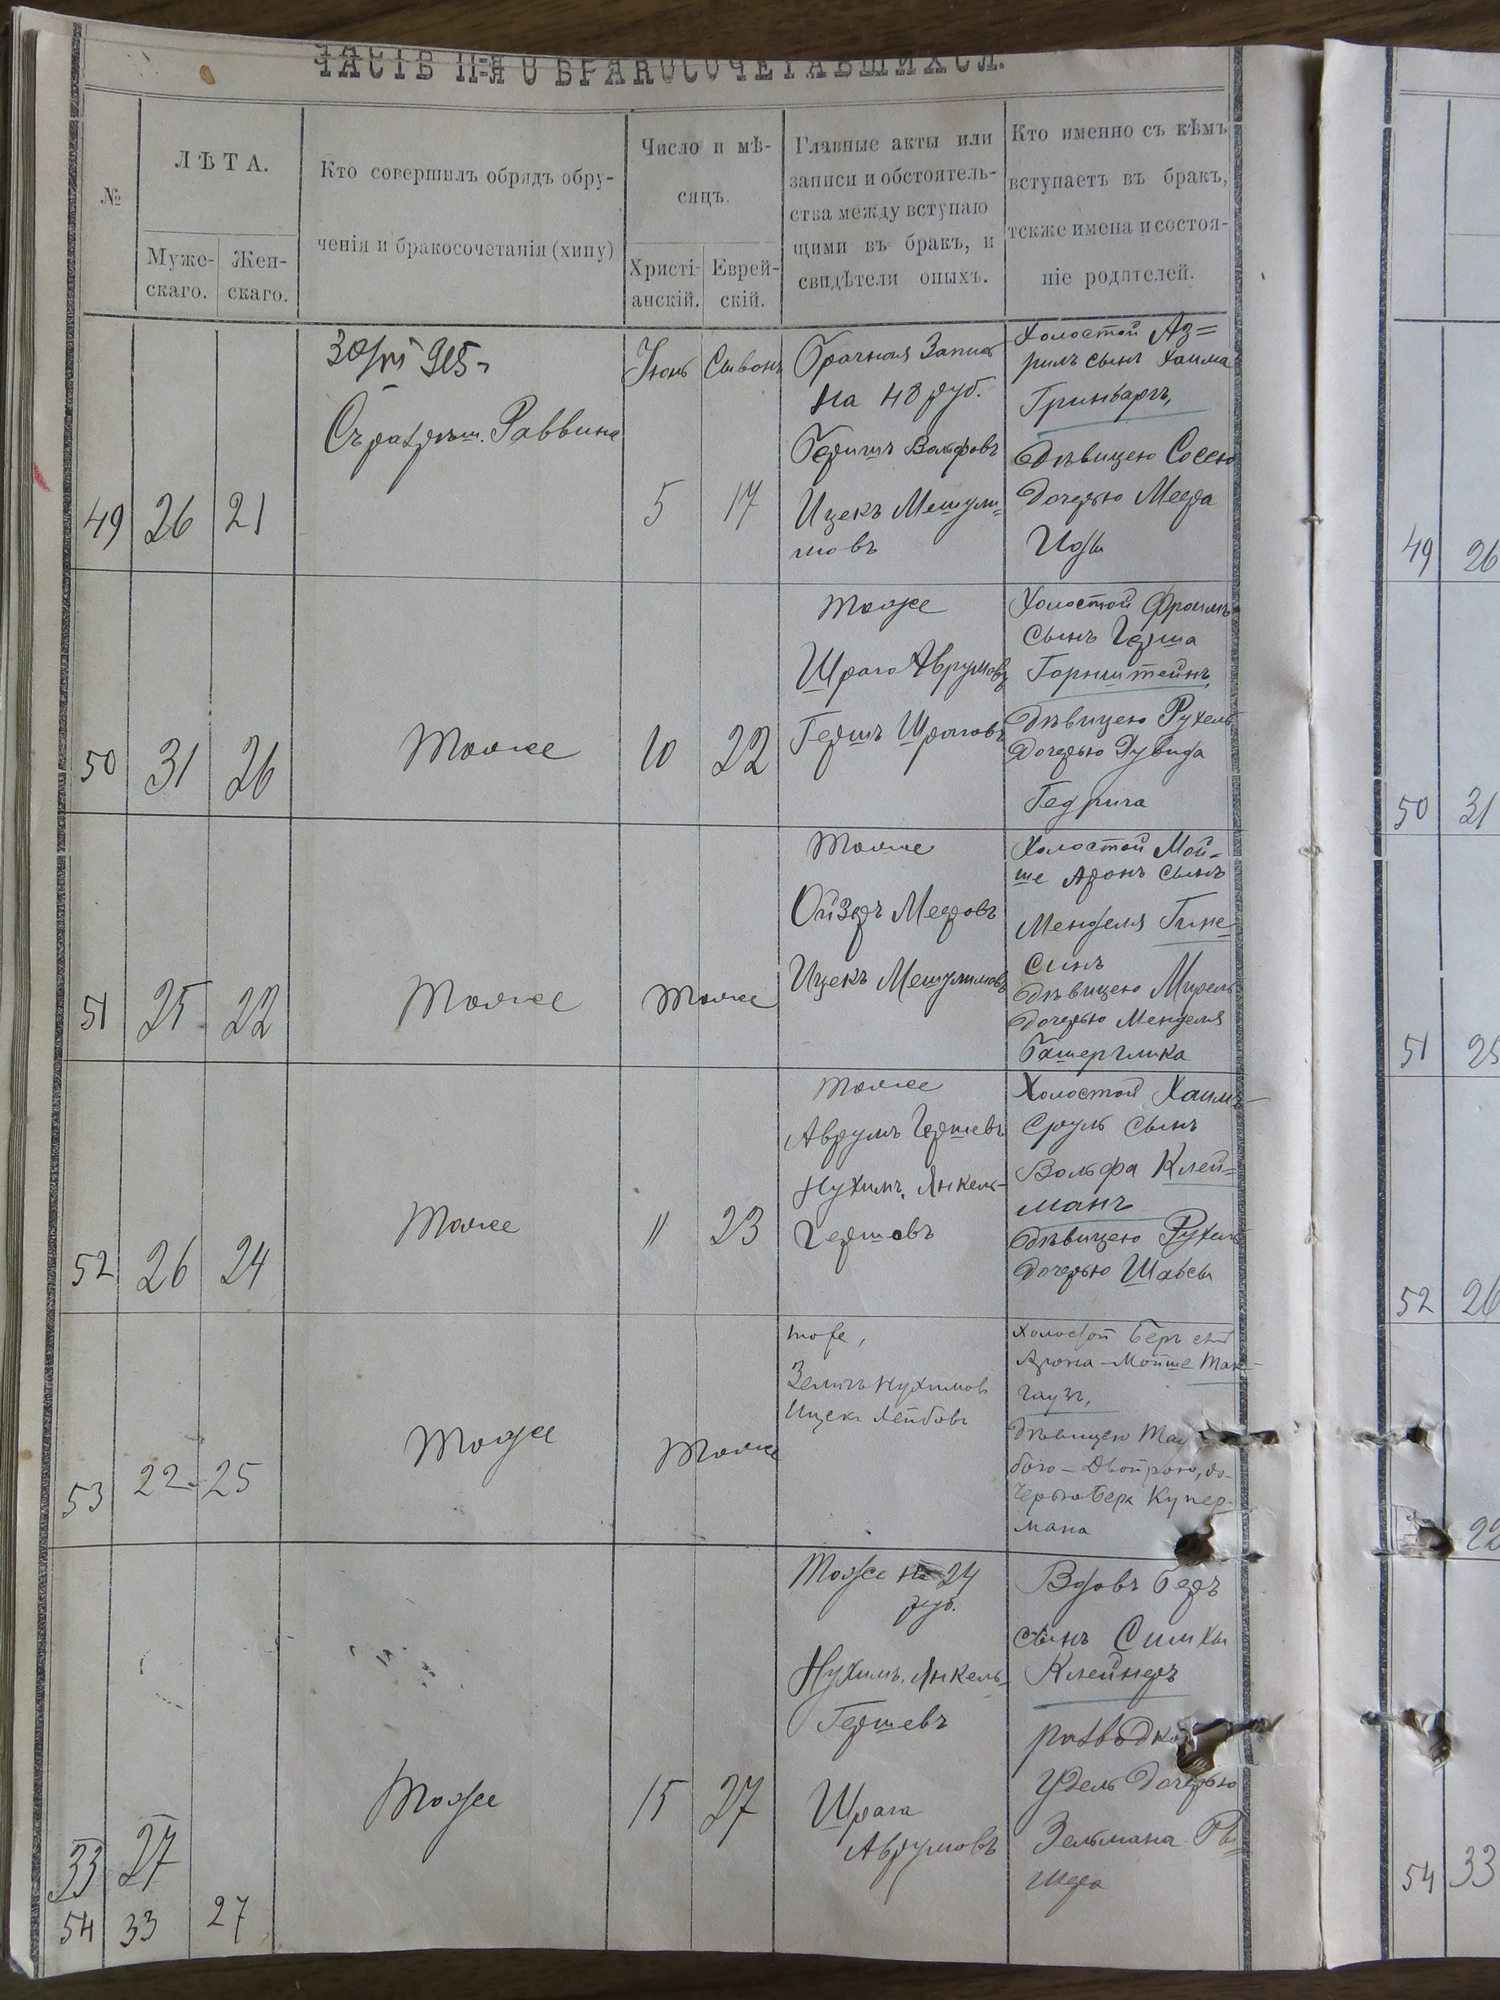 ЧАСТЬ II-Я О БРАКОСОЧЕТАВШИХСЯ.
№
ЛѢТА.
Муже-
скаго.
Жен-
скаго.
Кто совершилъ обрядъ обру-
ченія и бракосочетанія (хипу)
Число и мѣ-
сяцъ.
Христі-
анскій.
Еврей-
скій.
Главные акты или
записи и обстоятель-
ства между вступаю
щими въ бракъ, и
свидѣтели оныхъ.
Кто именно съ кѣмъ
вступаетъ въ бракъ,
также имена и состоя-
ніе родителей.
49
26
21
Раввина
Іюнь
5
Сивонъ
17
Брачная Запись
на 48 руб.
Гершъ Вольфовъ
Ицекъ Мешули-
мовъ
Холостой Аз=
рилъ сынъ Хаима
Гринбаргъ,
Дѣвицею Сосею
Дочерью Меера
Иоды
50
31
26
Тоже
10
22
Тоже
Шраго Аврумовъ
Гершъ Шраговъ
Холостой Фроимъ
сынъ Герша
Горнштейнъ
Дѣвицею Рухель
Дочерью Дувида
Гедрича
51
25
22
Тоже
Тоже
Тоже
Ойзеръ Мееровъ
Ицекъ Мешулимовъ
Холостой Мой-
ше Аронъ сынъ
Менделя Гине-
синъ
Дѣвицею Мирель
Дочерью Менделя
Башерглика
52
26
24
Тоже
11
23
Тоже
Аврумъ Гершевъ
Нухимъ, Янкель-
Гершовъ
Холостой Хаимъ-
Сруль сынъ
Вольфа Клей=
манъ
Дѣвицею Рухель
Дочерью Шабсы
53
22
25
Тоже
Тоже
тоже,
Зелигъ Нухимов
Ицекъ Лейбовъ
холостой Беръ снъ
Арона-Мойше Так-
гаузъ,
Дѣвицею Тау
бою-Двойрою, до-
черью Бера Купер-
мана
33
27
54
33
27
Тоже
15
27
Тоже на 24
руб.
Нухимъ, Янкель-
Гершевъ
Шрага
Аврумовъ
Вдовъ Беръ
сынъ Симхи
Клейнеръ
Удель Дочерью
Зельмана
49
26
50
31
51
25
52
26
22
54
33